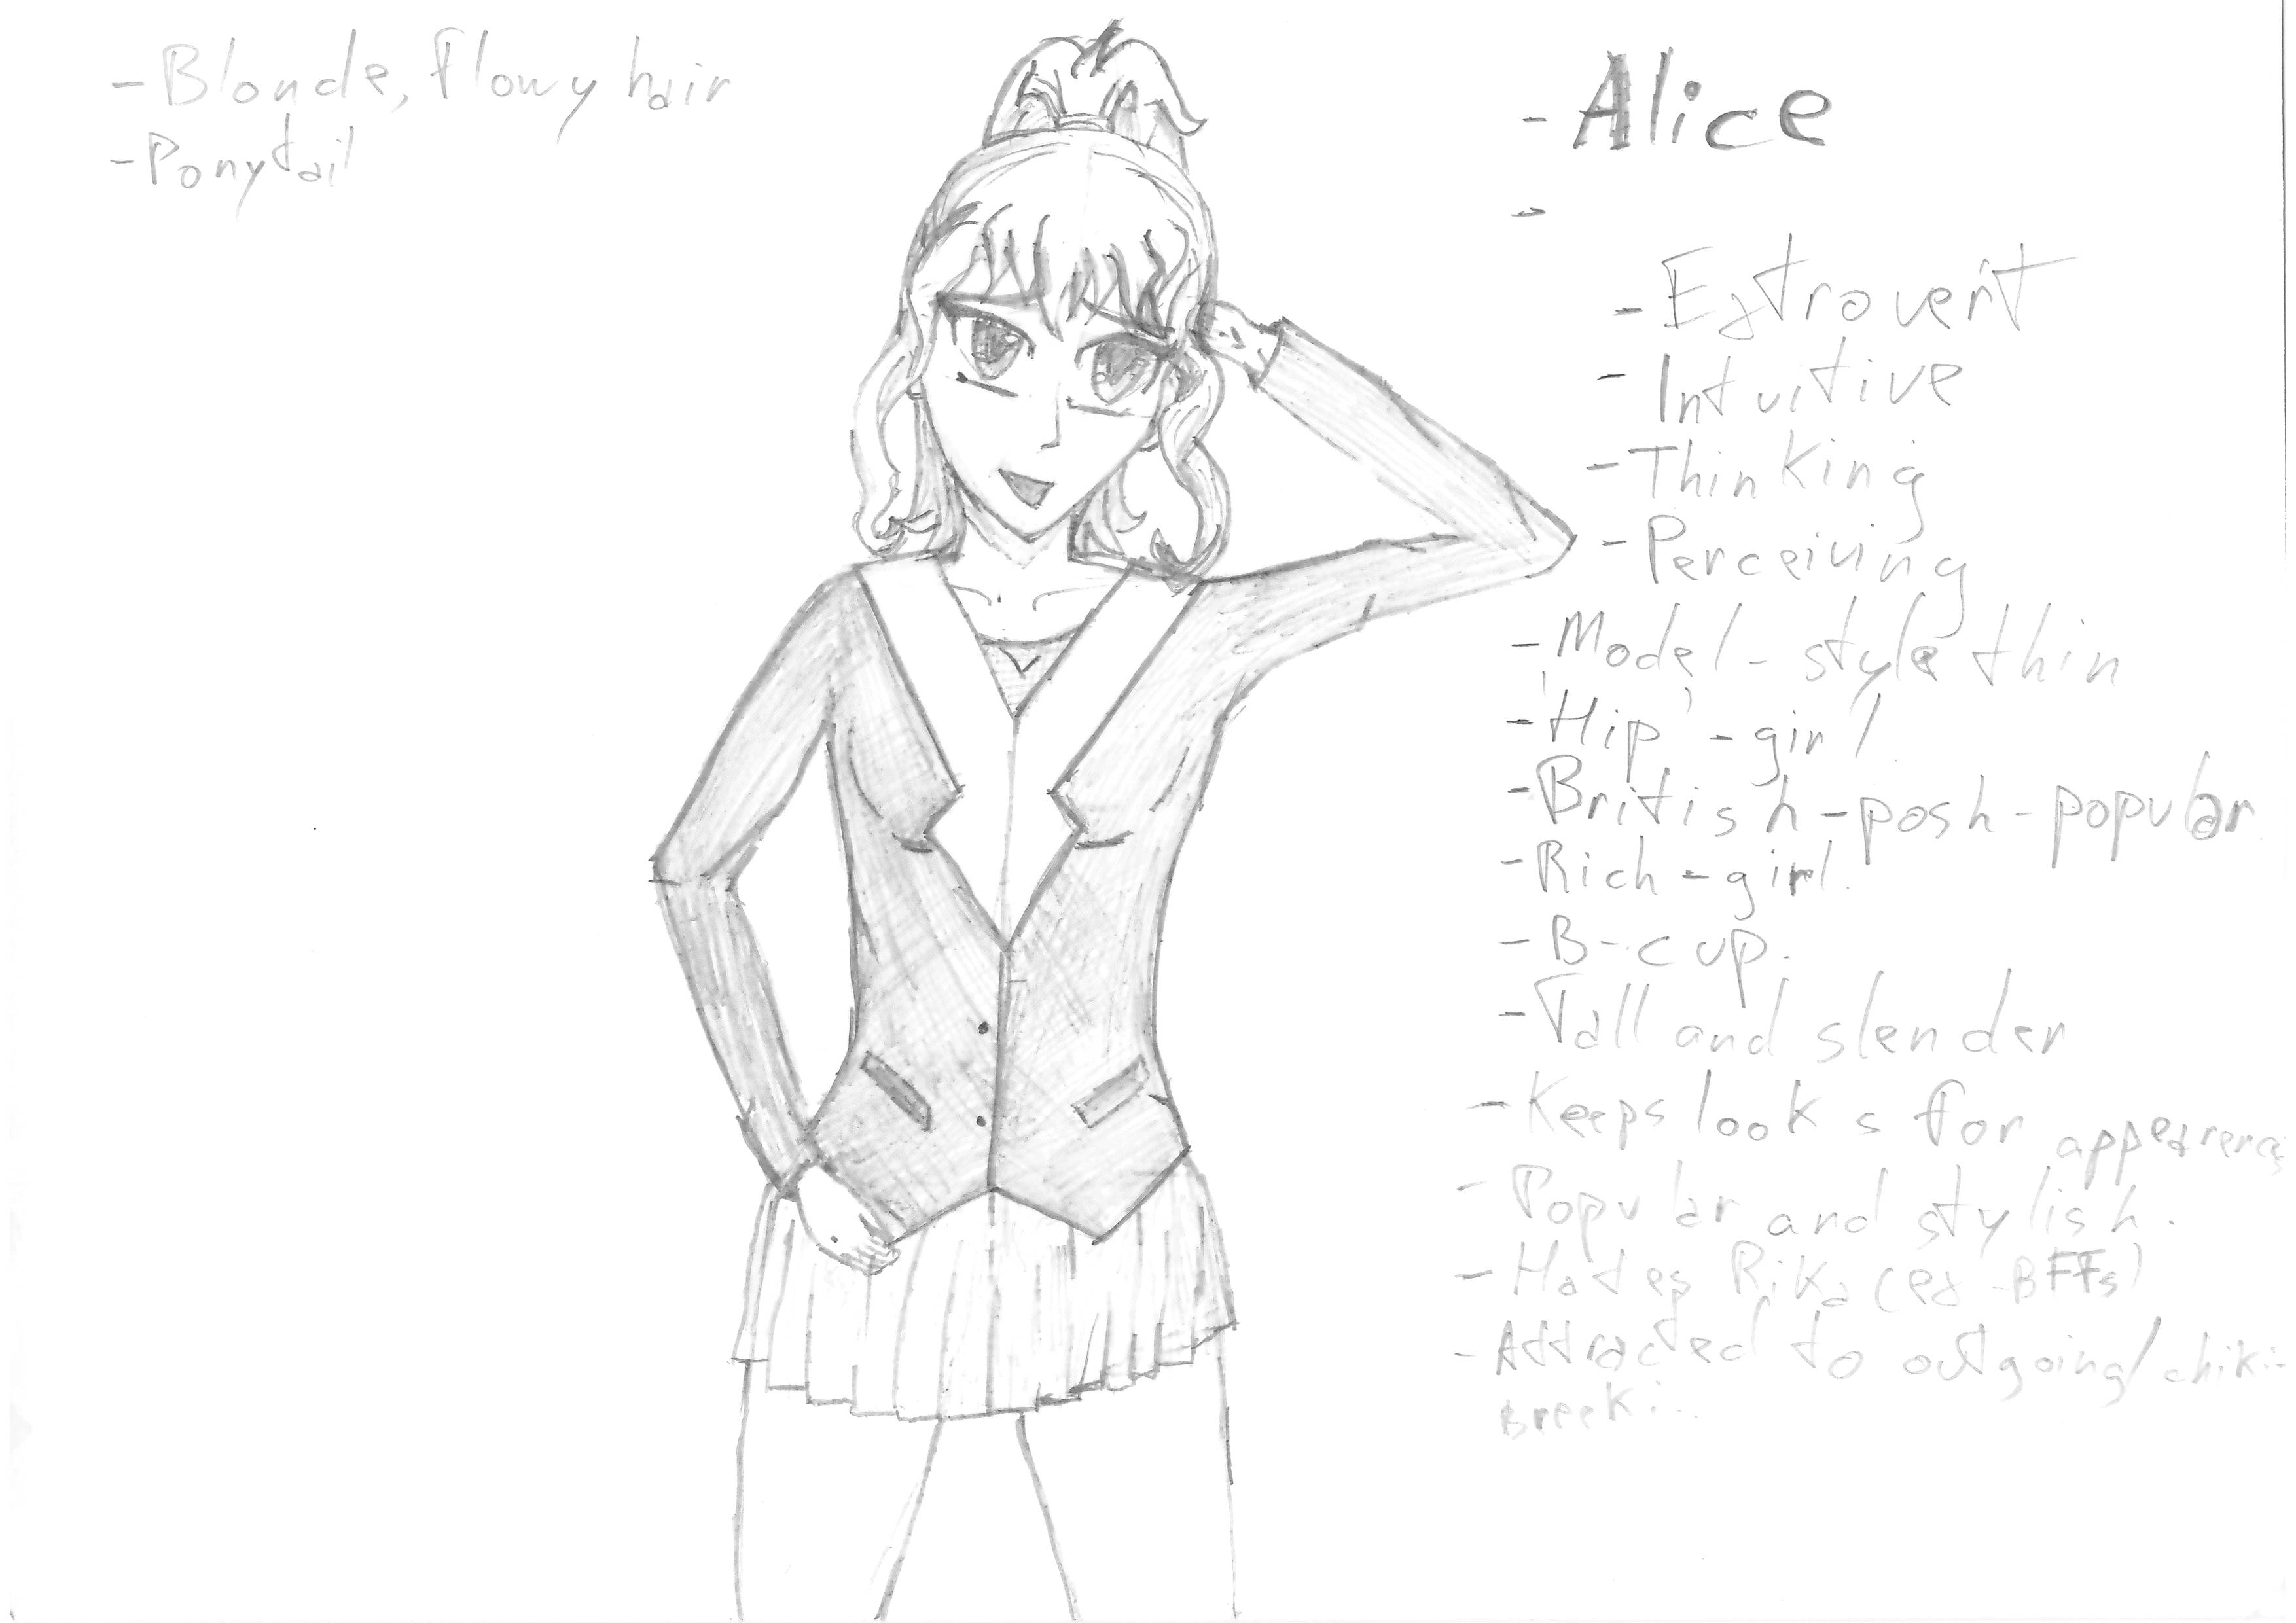 - Blonde, flowy hair
- Ponytail
- Alice
-
- Extrovert
- Intuitive
- Thinking
- Perceiving
- Model-style thin
- 'Hip'-girl
- British-posh-popular
- Rich-girl.
- B-cup.
- Tall and slender
- Keeps looks for
- Popular and stylish.
- Hates Rika (ex-BFFs)
- Attracted to outgoing/chiki-
Breeki.